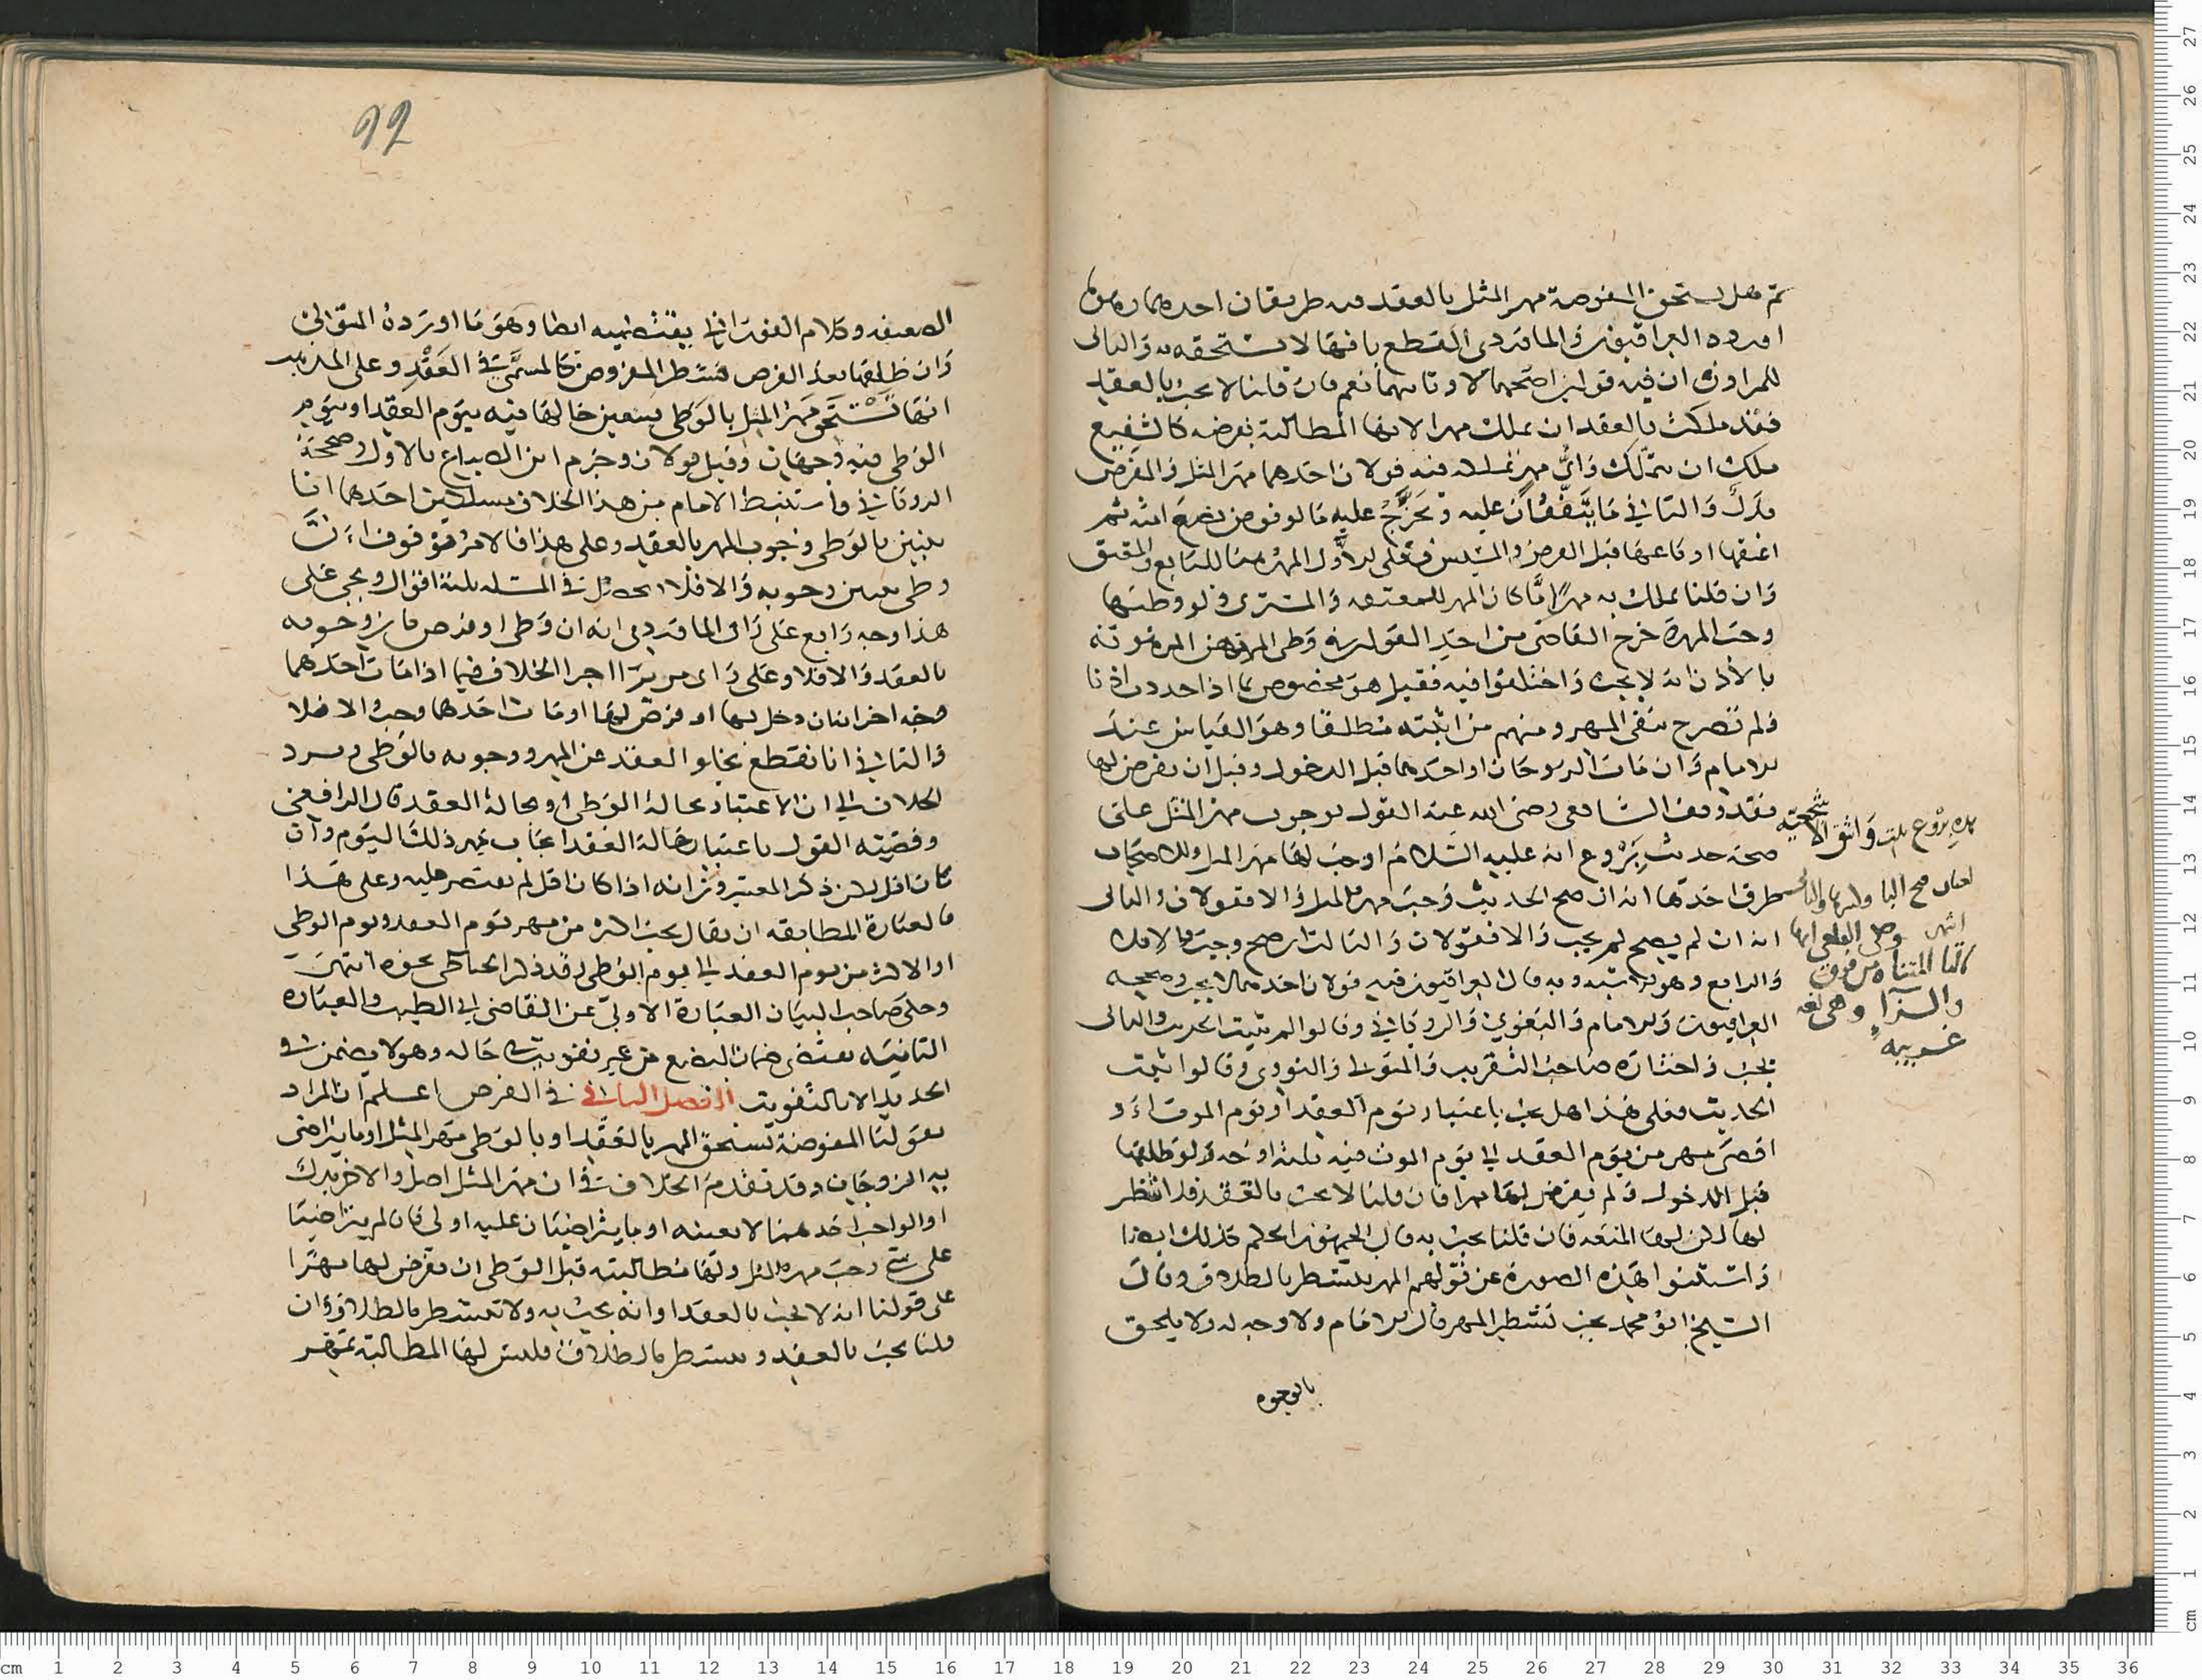 ثم هل تستحق المفوضة مهر المثل بالعقد فيه طريقان احدهما وهو ما
اورده العراقيون والماوردي القطع بانها لا تستحقه به والثاني
للمراوزة ان فيه قولين اصحهما لا وثانيهما نعم فان قلنا لا يجب بالعقد
فقد ملكت بالعقد ان تملك مهرا لانها المطالبة بفرضه كالشفيع
ملك ان يتملك واي مهر تملك فيه قولان احدهما مهر المثل والمفرض
بدل والثاني ما يتفقان عليه وتخرج عليه ما لو فوض بضع امته ثم
اعتقها او باعها قبل الفرض والمسيس فعلى الاول المهر هنا للبايع والمعتق
وان قلنا تملك به مهرا ما كان المهر للمعتقة والمشتري ولو وطئها
وجب المهر خرج القاضي من احد القولين في وطى المرتهن المرهونة
بالاذن انه لا يجب واختلفوا فيه فقيل هو مخصوص بما اذا
ولم تصرح بنفي المهر ومنهم من اثبته مطلقا وهو القياس عند
الامام وان مات الزوجان او احدهما قبل الدخول وقبل ان يفرض لها
فقد وقف الشافعي رضي الله عنه القول بوجوب مهر المثل على
صحة حديث بروع انه عليه السلام اوجب لها مهر المثل وللاصحاب
طرق احدها انه ان صح الحديث وجب مهر المثل والا فقولان والثاني
انه ان لم يصح لم يجب والا فقولان والثالث ان صح وجب والا فلا
والرابع وهو وبه قال العراقيون فيه قولان احدهما لا يجب وصححه
العراقيون والامام والبغوي والروياني وقالوا لم يثبت الحديث والثاني
يجب واختاره صاحب التقريب والمتولي والنووي وقالوا ثبت
الحديث فعلى هذا هل يجب باعتبار يوم العقد او يوم الموت او
اقصى مهر من يوم العقد الى يوم الموت فيه ثلثة اوجه ولو طلقها
قبل الدخول ولم يفرض لها مهرا فان قلنا لا يجب بالعقد فلا تشطر
لها لكن لها المتعة فان قلنا يجب به قال الجمهور الحكم كذلك ايضا
واستثنوا هذه الصورة عن قولهم المهر يتشطر بالطلاق وقال
الشيخ ابو محمد يجب تشطر المهر قال الامام ولا وجه له ولا يلحق
بالوجوه
بروع بنت واشق الاشجعية
فتح البا وكسرها
وحكى القلعي انها
بالتا المثناة من فوق
والزاء وهي لغة
غريبة
92
الضعيفة وكلام الفوراني يقتضيه ايضا وهو ما اورده المتولي
وان طلقها بعد الفرض فشطر المفروض كالمسمى في العقد وعلى المذهب
انها تستحق مهر المثل بالوطى يتعين حالها فيه بيوم العقد او بيوم
الوطى فيه وجهان وقيل قولان وجزم ابن الصباغ بالاول وصححه
الروياني واستنبط الامام من هذا الخلاف مسلكين احدهما انا
نتبين بالوطى وجوب المهر بالعقد وعلى هذا فالامر موقوف ان
وطى تعين وجوبه والا فلا في المسئلة ثلثة اقوال ويجي على
هذا وجه رابع على راي الماوردي انه ان وطى او فرض بان وجوبه
بالعقد والا فلا وعلى راي من يرى اجرا الخلاف فيما اذا مات احدهما
وجه اخر انه ان دخل بها او فرض لها او مات احدهما وجب والا فلا
والثاني انا نقطع بخلو العقد عن المهر ووجوبه بالوطى ويرد
الخلاف الى ان الاعتبار بحالة الوطى او بحالة العقد قال الرافعي
وقضيته القول باعتبار حالة العقد ايجاب مهر ذلك اليوم وان
كان اقل لكن ذكر المعتبرون انه اذا كان اقل لم يقتصر عليه وعلى هذا
فالعبارة المطابقة ان يقال يجب الاكثر من مهر يوم العقد ويوم الوطى
او الاكثر من يوم العقد الى يوم الوطى وقد ذكر الحناطي نحوه انتهى
وحكى صاحب البيان العبارة الاولى عن القاضي ابي الطيب والعبارة
الثانية تقتضي ضمان البضع من غير تفويت في حاله وهو لا يضمن في
الجديد الا بالتفويت الفصل الثاني في الفرض اعلم ان المراد
بقولنا المفوضة تستحق المهر بالعقد او بالوطى مهر المثل او ما يتراضى
به الزوجان وقد تقدم الخلاف في ان مهر المثل اصل والاخر بدل
او الواجب احدهما لا بعينه او ما يتراضيان عليه اولى فان لم يتراضيا
على شي وجب مهر المثل ولها مطالبته قبل الوطى ان يفرض لها مهرا
على قولنا انه لا يجب بالعقد او انه يجب به ولا يتشطر بالطلاق وان
قلنا يجب بالعقد ويتشطر بالطلاق فليس لها المطالبة بمهر